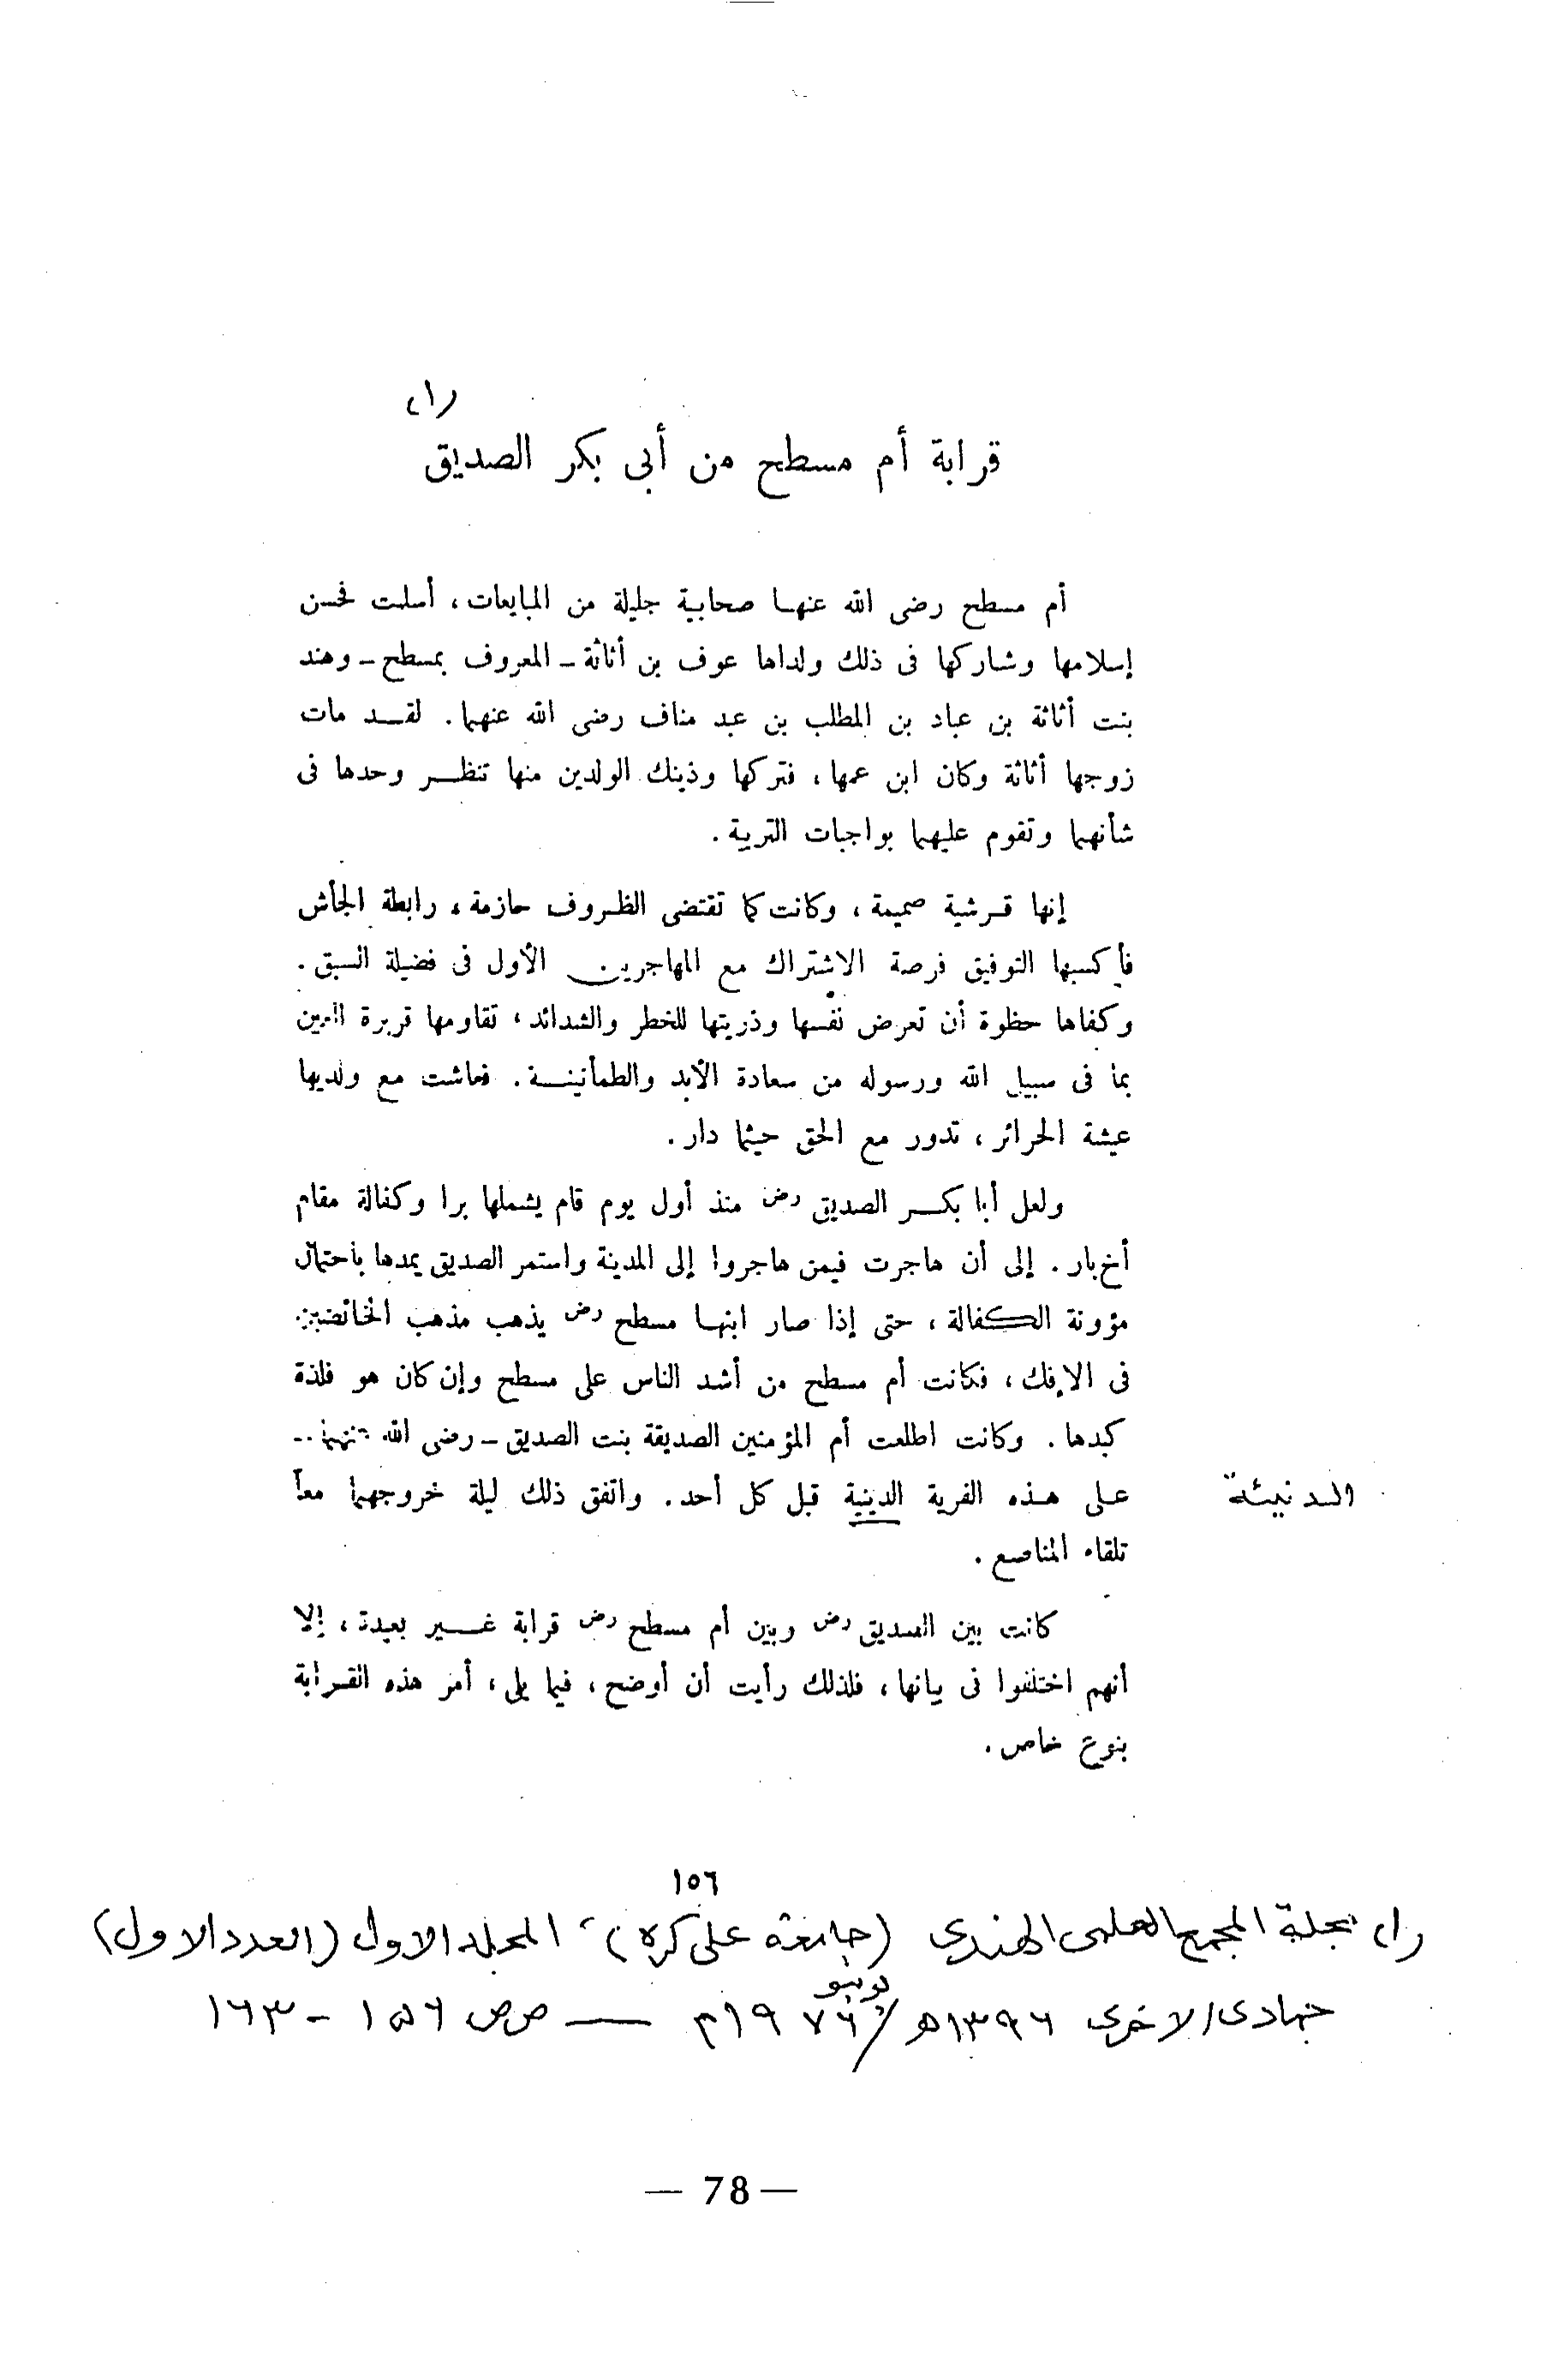 (١)
قرابة أم مسطح من أبى بكر الصديق
أم مسطح رضى الله عنهـا صحابية جليلة من المبايعات، أسلمت فحسن
إسلامها وشاركها فى ذلك ولداها عوف بن أثاثة ــ المعروف بمسطح ــ وهند
بنت أثاثة بن عباد بن المطلب بن عبد مناف رضى الله عنهما. لقـد مات
زوجها أثاثة وكان ابن عمها، فتركها وذينك الولدين منها تنظـر وحدها فى
شأنهما وتقوم عليهما بواجبات التربية.
إنها قـرشية صميمة، وكانت كما تقتضى الظـروف حازمة، رابطة الجأش
فأكسبها التوفيق فرصة الاشتراك مع المهاجرين الأول فى فضيلة السبق.
وكفاها حظوة أن تعرض نفسها وذريتها للخطر والشدائد، تقاومها قريرة العين
بما فى سبيل الله ورسوله من سعادة الأبد والطمأنينـة. فعاشت مع ولديها
عيشة الحرائر، تدور مع الحق حيثما دار.
ولعل أبا بكـر الصديق رض منذ أول يوم قام يشملها برا وكفالة مقام
أخ بار. إلى أن هاجرت فيمن هاجروا إلى المدينة واستمر الصديق يمدها باحتمال
مؤونة الكفالة، حتى إذا صار ابنهـا مسطح رض يذهب مذهب الخائضين
فى الإفك، فكانت أم مسطح من أشد الناس على مسطح وإن كان هو فلذة
كبدها. وكانت اطلعت أم المؤمنين الصديقة بنت الصديق ــ رضى الله عنهما ــ
عـلى هـذه الفرية الدينية قبل كل أحد. واتفق ذلك ليلة خروجهما معاً
الدنيئة
تلقاء المناصع.
كانت بين الصديق رض وبين أم مسطح رض قرابة غـير بعيدة، إلا
أنهم اختلفوا فى بيانها، فلذلك رأيت أن أوضح، فيما يلى، أمر هذه القـرابة
بنوع خاص.
١٥٦
(١) مجلة المجمع العلمى الهندى (جامعة على كره)، المجلد الاول (العدد الاول)
جمادى الاخرى ١٣٩٦ه / يونيو ١٩٧٦م —— صص ١٥٦ - ١٦٣
— 78 —